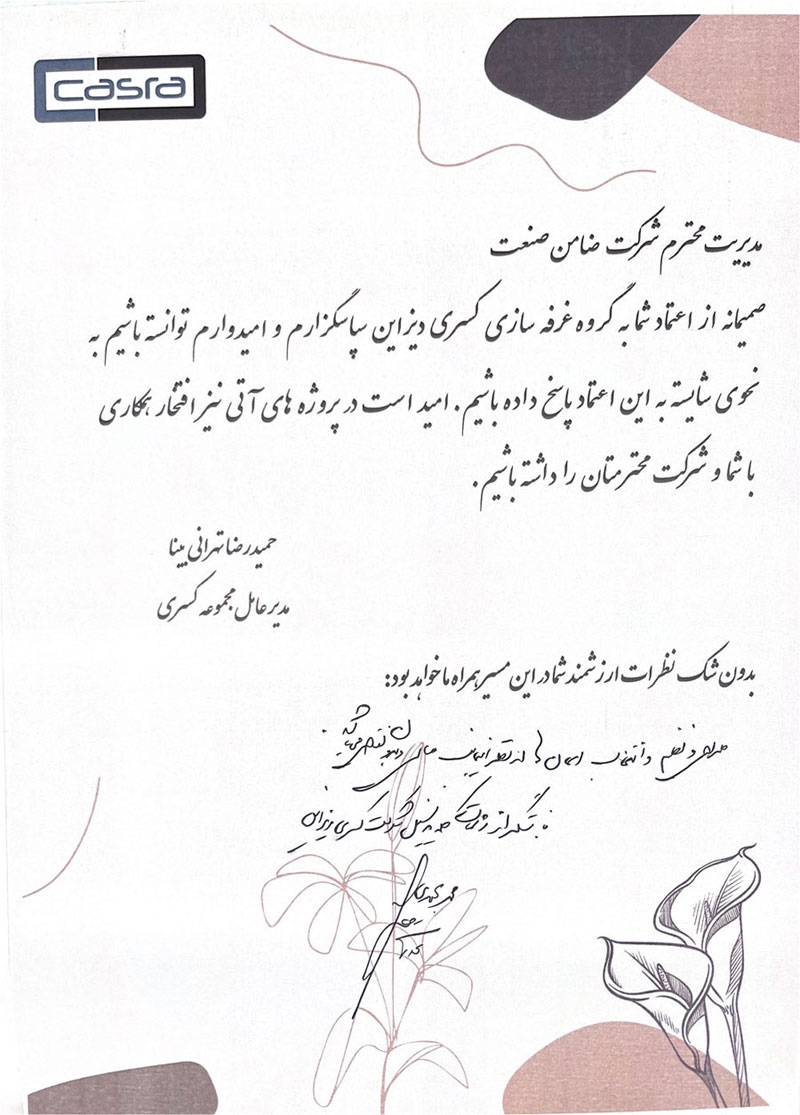 casra
مدیریت محترم شرکت ضامن صنعت
صمیمانه از اعتماد شما به گروه غرفه سازی کسری دیزاین سپاسگزارم و امیدوارم توانسته باشیم به
نحوی شایسته به این اعتماد پاسخ داده باشیم. امید است در پروژه های آتی نیز افتخار همکاری
با شما و شرکت محترمتان را داشته باشیم.
حمیدرضا تهرانی بینا
مدیرعامل مجموعه کسری
بدون شک نظرات ارزشمند شما در این مسیر همراه ما خواهد بود:
طراحی و نظم و انتخاب المان ها از نظر اینجانب عالی
با تشکر از زحمات همه پرسنل شرکت کسری دیزاین